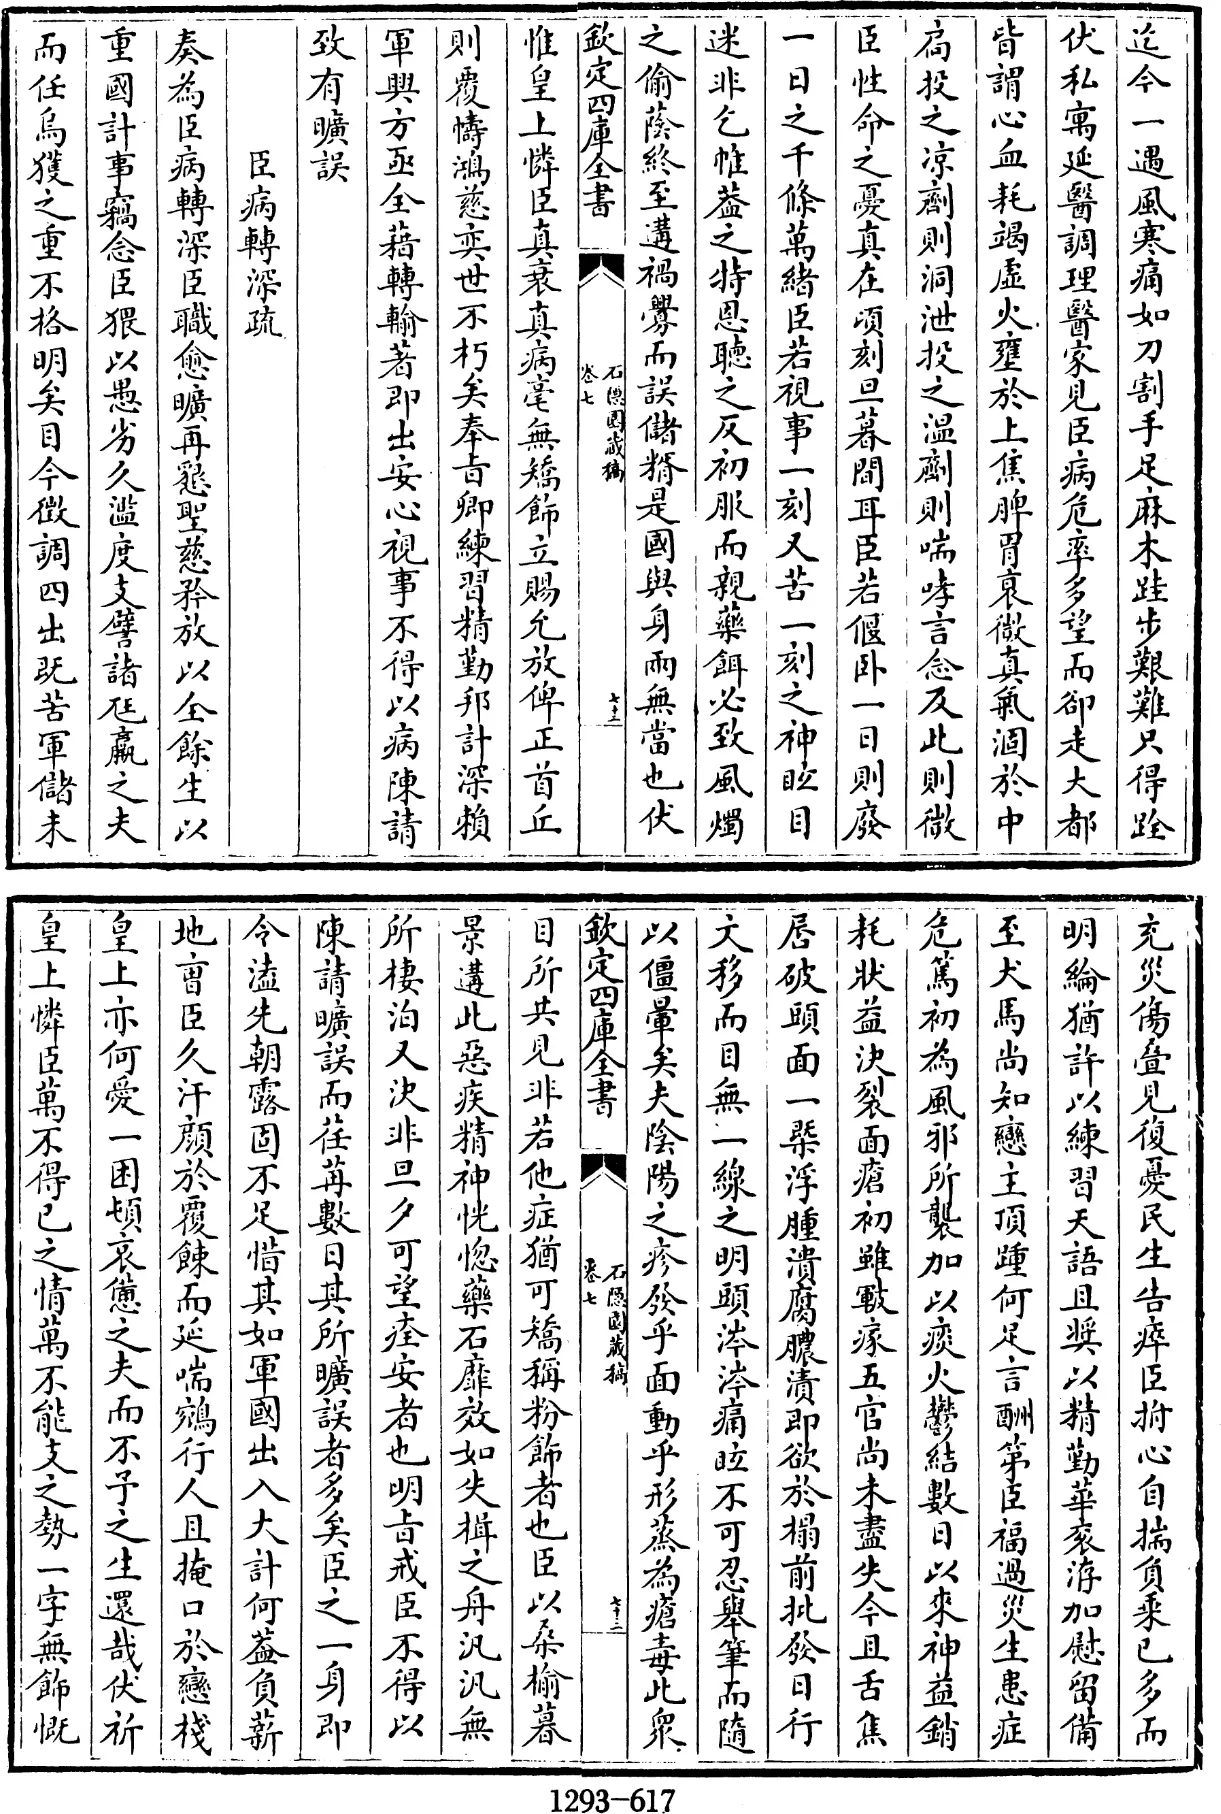 迄今一遇風寒痛如刀割手足麻木跬步艱難只得跧
伏私寓延醫調理醫家見臣病危率多望而卻走大都
皆謂心血耗竭虛火壅於上焦脾胃衰微真氣涸於中
扃投之凉劑則洞泄投之溫劑則喘哮言念及此則微
臣性命之憂真在頃刻旦暮間耳臣若偃卧一日則廢
一日之千條萬緒臣若視事一刻又苦一刻之神眩目
迷非乞帷葢之特恩聽之反初服而親藥餌必致風燭
之偷蔭終至遘禍釁而誤儲糈是國與身兩無當也伏
欽定四庫全書
石隱園藏稿
卷七
七十二
惟皇上憐臣真衰真病毫無矯飾立賜允放俾正首丘
則覆幬鴻慈奕世不朽矣奉旨卿練習精勤邦計深賴
軍興方亟全藉轉輸著即出安心視事不得以病陳請
致有曠誤
臣病轉深疏
奏為臣病轉深臣職愈曠再懇聖慈矜放以全餘生以
重國計事竊念臣猥以愚劣久濫度支譬諸尫羸之夫
而任烏獲之重不格明矣目今徴調四出既苦軍儲未
充災傷疊見復憂民生告瘁臣拊心自揣負乘已多而
明綸猶許以練習天語且奬以精勤華衮洊加慰留備
至犬馬尚知戀主頂踵何足言酬第臣福過災生患症
危篤初為風邪所襲加以痰火鬱結數日以來神益銷
耗狀益決裂面瘡初雖皸瘃五官尚未盡失今且舌焦
唇破頭面一槩浮腫潰腐膿漬即欲於榻前批發日行
文移而目無一線之明頭涔涔痛眩不可忍舉筆而隨
以僵暈矣夫陰陽之疹發乎面動乎形蒸為瘡毒此衆
欽定四庫全書
石隱園藏稿
卷七
七十三
目所共見非若他症猶可矯稱粉飾者也臣以桑榆暮
景遘此惡疾精神恍惚藥石靡效如失楫之舟汎汎無
所棲泊又決非旦夕可望痊安者也明旨戒臣不得以
陳請曠誤而荏苒數日其所曠誤者多矣臣之一身即
令溘先朝露固不足惜其如軍國出入大計何葢負薪
地亩臣久汗顔於覆餗而延喘鵷行人且掩口於戀棧
皇上亦何愛一困頓哀憊之夫而不予之生還哉伏祈
皇上憐臣萬不得已之情萬不能支之勢一字無飾慨
1293-617